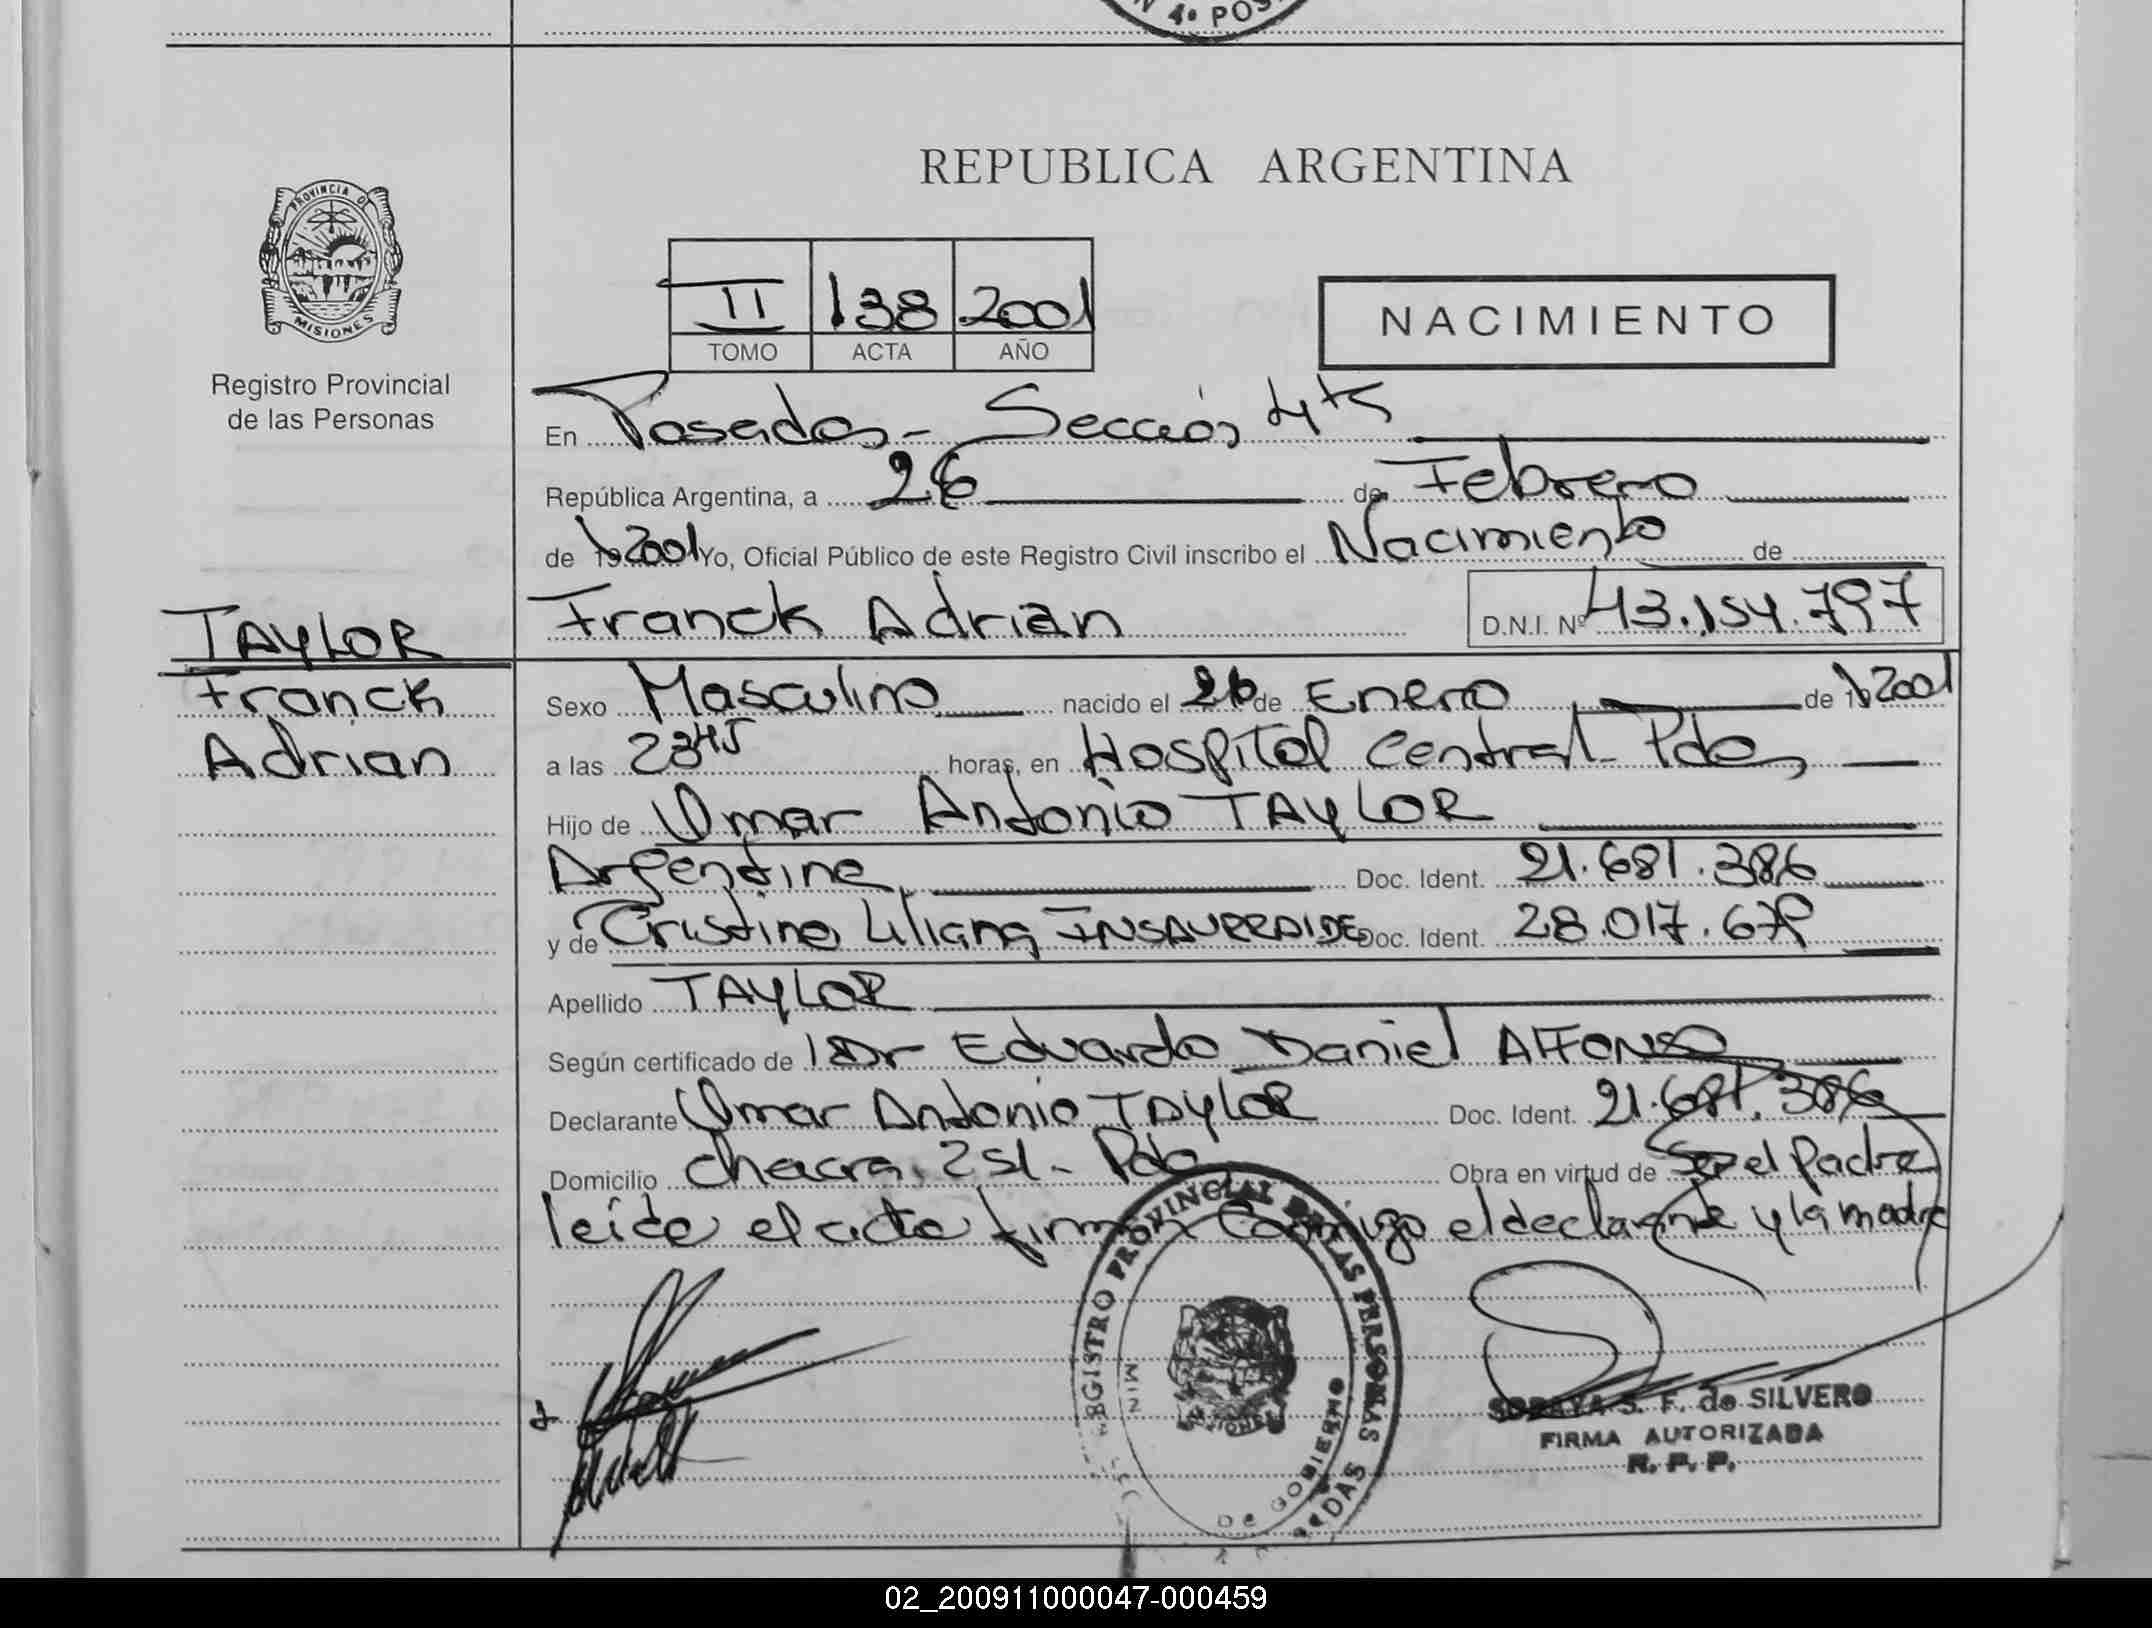 N 4ª POS
PROVINCIA D
MISIONES
Registro Provincial
de las Personas
REPUBLICA ARGENTINA
II 138 2001
TOMO ACTA AÑO
NACIMIENTO
En Posadas - Sección 4ta
República Argentina, a 26 de Febrero
de 19 2001 Yo, Oficial Público de este Registro Civil inscribo el Nacimiento de
TAYLOR
Franck
Adrian
Franck Adrian D.N.I. Nº 43.154.797
Sexo Masculino nacido el 26 de Enero de 19 2001
a las 2345 horas, en Hospital Central Pdas
Hijo de Omar Antonio TAYLOR
Argentina Doc. Ident. 21.681.386
y de Cristina Liliana INSAURRALDE Doc. Ident. 28.017.679
Apellido TAYLOR
Según certificado de Dr Eduardo Daniel Alfonso
Declarante Omar Antonio TAYLOR Doc. Ident. 21.681.386
Domicilio chacra 251 - Pdas Obra en virtud de Ser el Padre
leida el acta firman conmigo el declarante y la madre
REGISTRO PROVINCIAL DE LAS PERSONAS
MIN DE GOBIERNO
SORAYA S. F. de SILVERO
FIRMA AUTORIZADA
R. P. P.
02_200911000047-000459